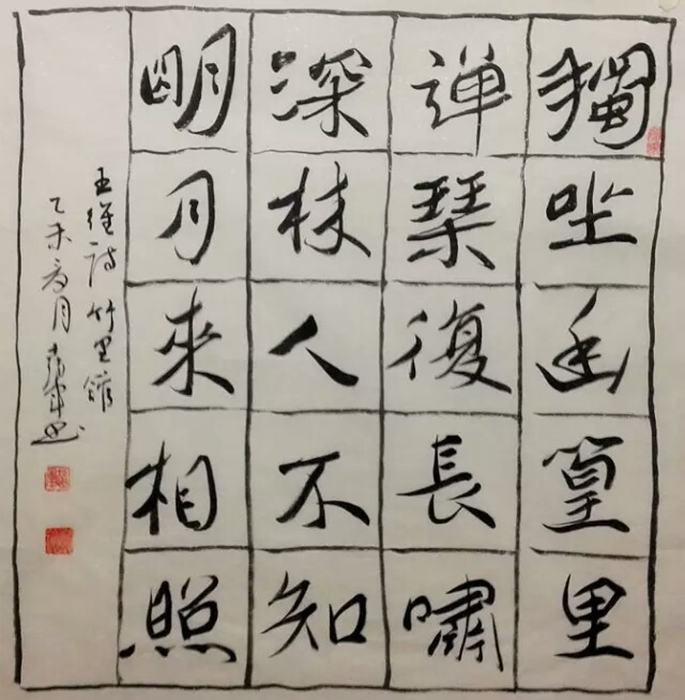 獨坐幽篁里
弹琹復長嘯
深林人不知
明月來相照
王維诗竹里館
乙未夏月